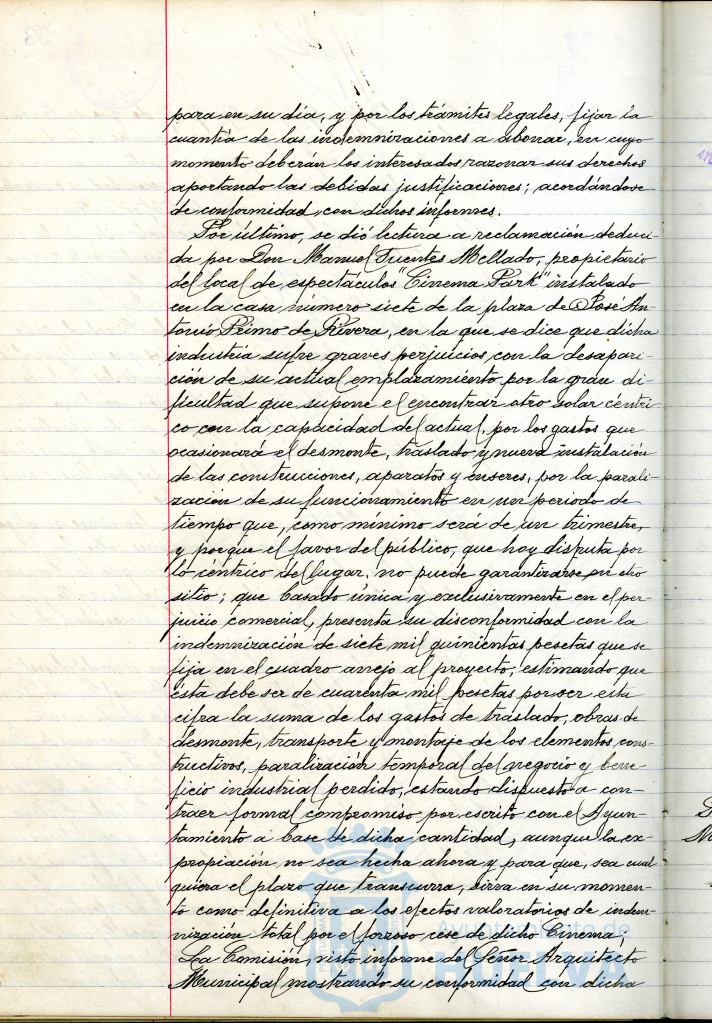 para en su día, y por los trámites legales, fijar la
cuantía de las indemnizaciones a abonar, en cuyo
momento deberán los interesados razonar sus derechos
aportando las debidas justificaciones; acordándose
de conformidad con dichos informes.
Por último, se dió lectura a reclamación deduci-
da por Don Manuel Fuentes Mellado, propietario
del local de espectáculos "Cinema Park" instalado
en la casa número siete de la plaza de José An-
tonio Primo de Rivera, en la que se dice que dicha
industria sufre graves perjuicios con la desapari-
ción de su actual emplazamiento por la gran di-
ficultad que supone el encontrar otro solar céntri-
co con la capacidad del actual, por los gastos que
ocasionará el desmonte, traslado y nueva instalación
de las construcciones, aparatos y enseres, por la parali-
zación de su funcionamiento en un periodo de
tiempo que, como mínimo será de un trimestre,
y porque el favor del público, que hoy disfruta por
lo céntrico del lugar, no puede garantizarse en otro
sitio; que basado única y exclusivamente en el per-
juicio comercial, presenta su disconformidad con la
indemnización de siete mil quinientas pesetas que se
fija en el cuadro anejo al proyecto, estimando que
ésta debe ser de cuarenta mil pesetas por ser esta
cifra la suma de los gastos de traslado, obras de
desmonte, transporte y montaje de los elementos cons-
tructivos, paralización temporal del negocio y bene-
ficio industrial perdido, estando dispuesto a con-
traer formal compromiso por escrito con el Ayun-
tamiento a base de dicha cantidad, aunque la ex-
propiación no sea hecha ahora y para que, sea cual
quiera el plazo que transcurra, sirva en su momen-
to como definitiva a los efectos valoratorios de indem-
nización total por el forzoso cese de dicho Cinema;
La Comisión, visto informe del Señor Arquitecto
Municipal mostrando su conformidad con dicha
Ayuntamiento de
HUELVA